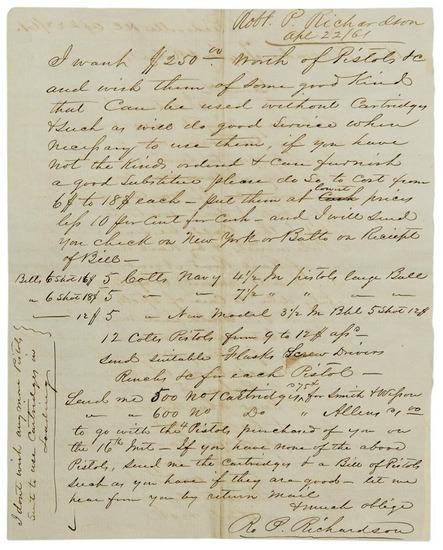 Robt. P. Richardson
Apl 22/61
I want $250 00 Worth of Pistols &c
and wish them of Some good Kind
that Can be used without Cartridges
& Such as will do good Service when
necessary to use them, if you have
not the Kinds ordered & Can furnish
a good Substitute please do So to Cost from
6$ to 18$ each - put them at Lowest prices
less 10 per Cent for Cash - and I will Send
You check on New York or Balto on Receipt
of Bill -
Belts 6 Shot 16$ 5 Colts Navy 4 1/2 In pistols large Ball
" 6 Shot 18$ 5 " " 7 1/2 " " "
- 12$ 5 " New Model 3 1/2 In Bbl 5 Shot 12$
12 Colts Pistols from 9 to 12$
Send Suitable Flasks Screw Drivers
&c for each Pistol -
Send me 500 No 1 Cartridges for Smith & Wesson
" " 600 No Do " Allens
to go with the Pistols purchased of you on
the 16th Inst - If you have none of the above
Pistols, Send me the Cartridges & a Bill of Pistols
Such as you have if they are good - let me
hear from you by return Mail
& much oblige
Ro P. Richardson
I dont wish any more Pistols
Sent to use Cartridges in